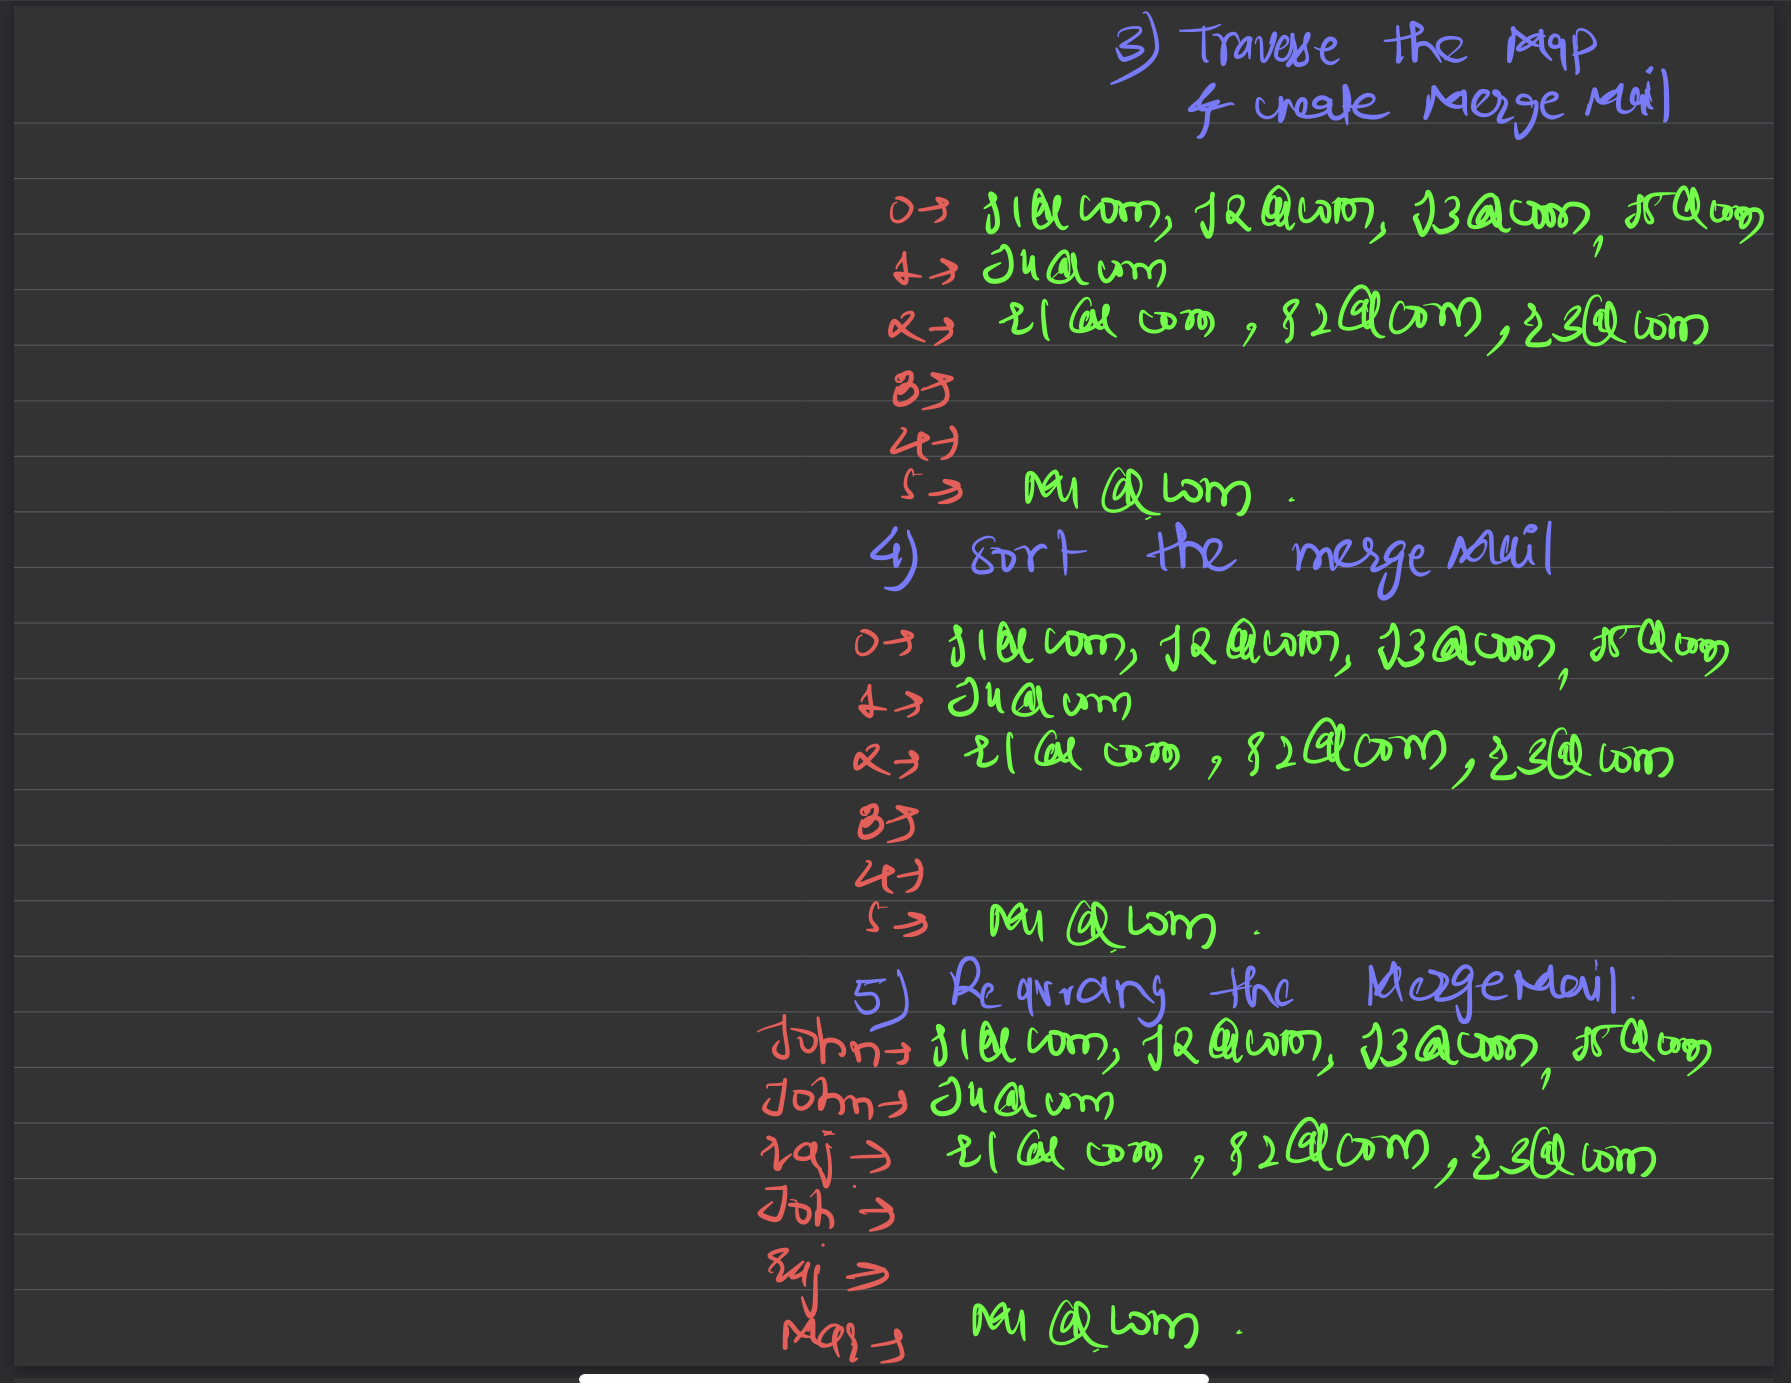 3) Traverse the Map
& create Merge Mail
0→ j1@com, J2@com, J3@com, J5@com
1→ J4@com
2→ r1@com, r2@com, r3@com
3→
4→
5→ M1@com.
4) sort the merge Mail
0→ j1@com, J2@com, J3@com, J5@com
1→ J4@com
2→ r1@com, r2@com, r3@com
3→
4→
5→ M1@com.
5) Rearrang the MergeMail.
John→ j1@com, J2@com, J3@com, J5@com
John→ J4@com
raj→ r1@com, r2@com, r3@com
Joh→
raj→
Mar→ M1@com.